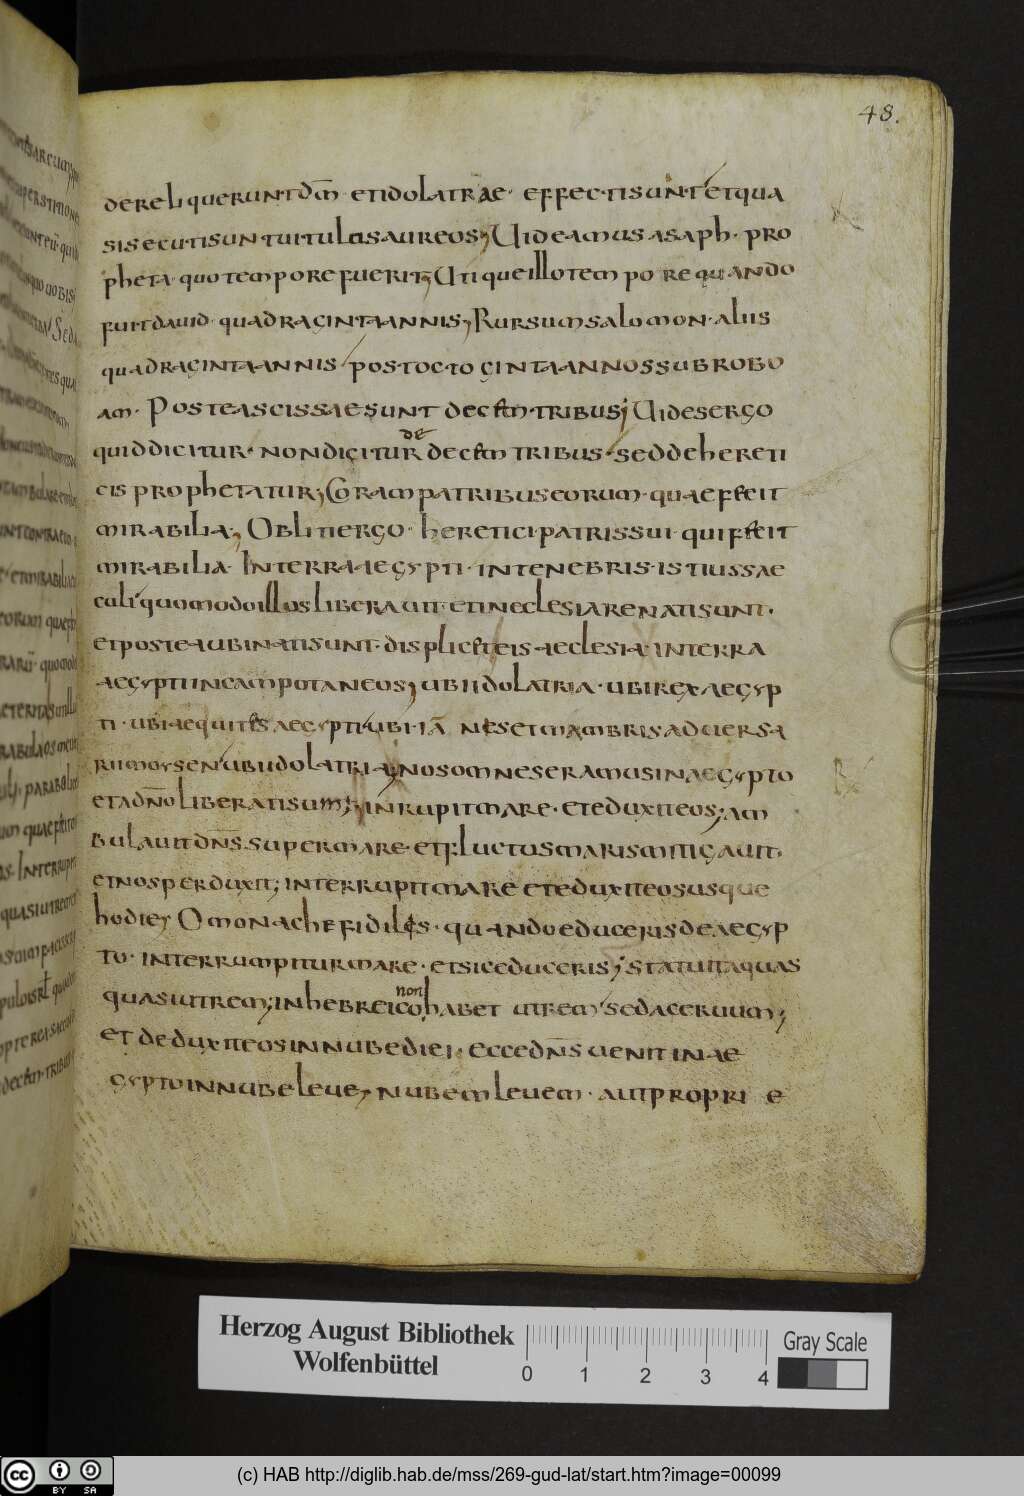 48.
derelinqueruntdm̅· etidolatrae· effectisunt etqua
sisecutisuntuitulosaureos; Uideamus asaph· pro
pheta· quotemporefuerit; Utiqueillotempo requando
fuitdauid· quadragintaannis; Rursumsalomon· aliis
quadragintaannis postoctogintaannossubrobo
am· Posteascissaesunt decem·tribus; Uidesergo
quiddicitur· nondicitur de decem tribus· seddehereti
cis prophetatur; Corampatribuseorum· quaefecit
mirabilia; Obliti ergo· heretici·patrissui· quifecit
mirabilia· Interraaegypti· intenebris·istiussae
culi quomodoilloslIberauit· etineclesiarenatisunt·
etposteaubinatisunt·displiceteis·aeclesia· interra
aegyptiincampotaneos; ubiidolatria· ubirexaegyp
ti· ubiaequites aegypti·ubi·ia̅ nesetmambris aduersa
riimoysen ubiidolatria; nosomneseramusinaegypto
etadn̅oliberatisum; inrupitmare· eteduxiteos; am
bulauitdn̅s·supermare· etfluctusmarismitigauit·
etnosperduxit; interrupitmare eteduxiteosusque
hodie; Omonachefideles· quandoeducerisdeaegyp
to· interrumpiturmare· etsiceduceris; statuitaquas
quasiutrem; inhebreico non habet utrem· sedaceruum;
et deduxiteosinnubediei· eccedn̅s uenit inae
gyptoinnubeleue; nubemleuem· autpropri e
Herzog August Bibliothek
Wolfenbüttel
0 1 2 3 4
Gray Scale
cc BY SA
(c) HAB http://diglib.hab.de/mss/269-gud-lat/start.htm?image=00099